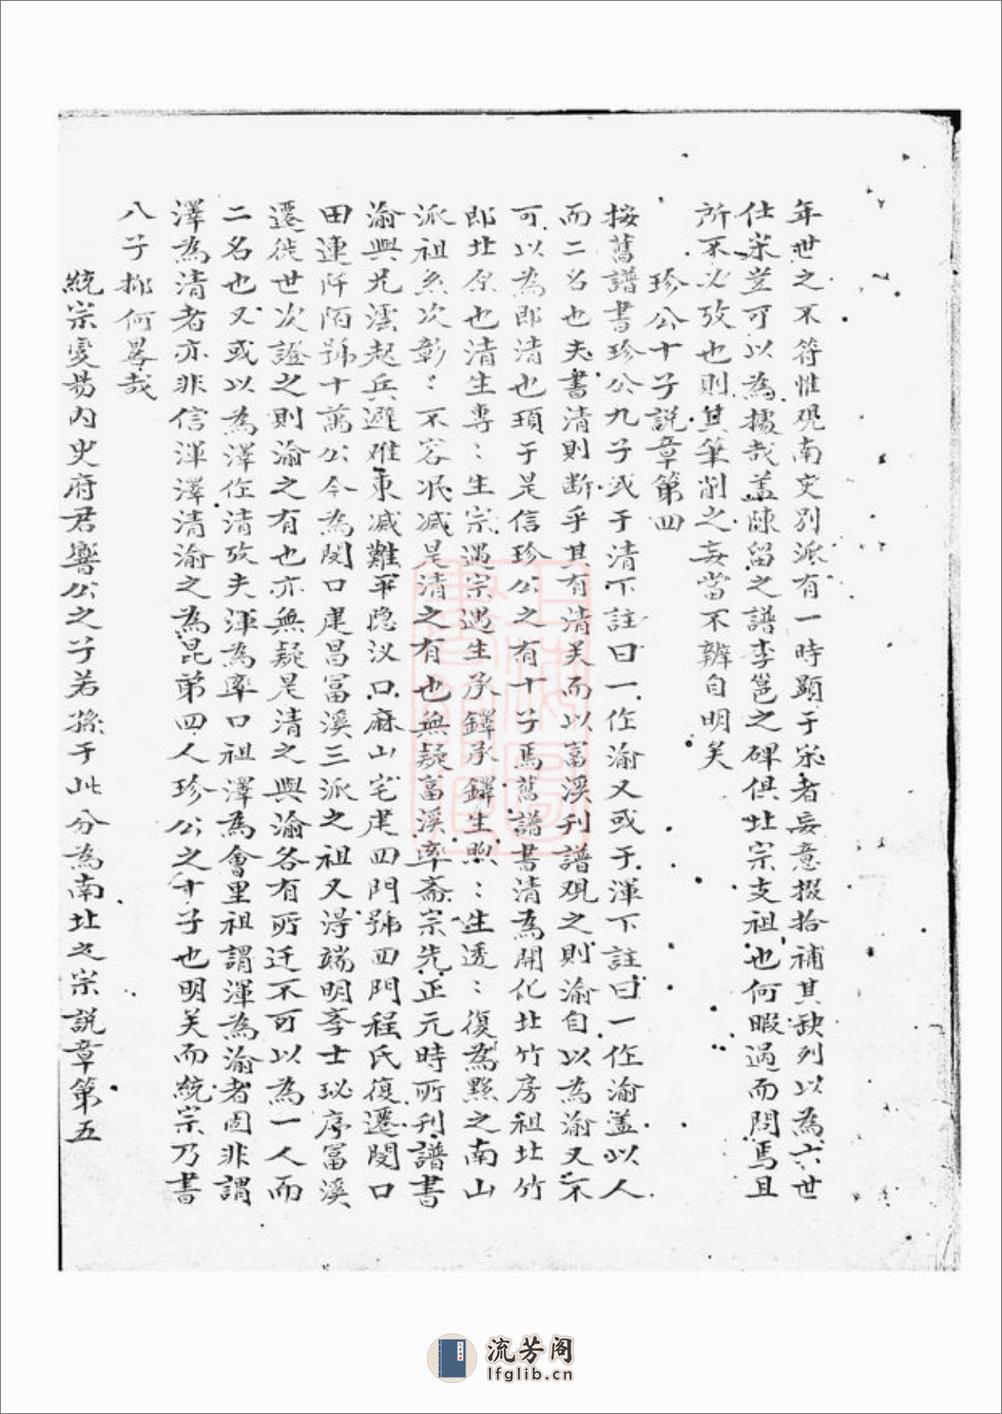 年世之不符惟觀南支別派有一時顯于宋者妄意掇拾補其缺列以為六世
仕宋豈可以為據哉蓋陳留之譜李邕之碑俱北宗支祖也何暇過而問焉且
所不必攷也則其筆削之妄當不辨自明矣
珍公十子說章第四
按舊譜書珍公九子或于清下註曰一作渝又或于渾下註曰一作渝蓋以人
而二名也夫書清則斷乎其有清矣而以富溪刊譜觀之則渝自以為渝又不
可以為即清也頊于是信珍公之有十子焉舊譜書清為開化北竹房祖北竹
即北原也清生專〻生宗遇宗遇生承鐸承鐸生煦〻生透〻復為黟之南山
派祖系次彰〻不容泯滅是清之有也無疑富溪率齋宗先正元時所刊譜書
渝與兄澐起兵避难東減難平隐汊口麻山宅建四門號四門程氏復遷閔口
田連阡陌號十萬公今為閔口建昌富溪三派之祖又淂端明李士珌序富溪
遷徙世次證之則渝之有也亦無疑是清之與渝各有所迁不可以為一人而
二名也又或以為澤作清攷夫渾為率口祖澤為會里祖謂渾為渝者固非謂
澤為清者亦非信渾澤清渝之為昆弟四人珍公之十子也明矣而統宗乃書
八子抑何畧哉
統宗变易内史府君謷公之子若孫于此分為南北之宗説章第五
流芳阁
lfglib.cn